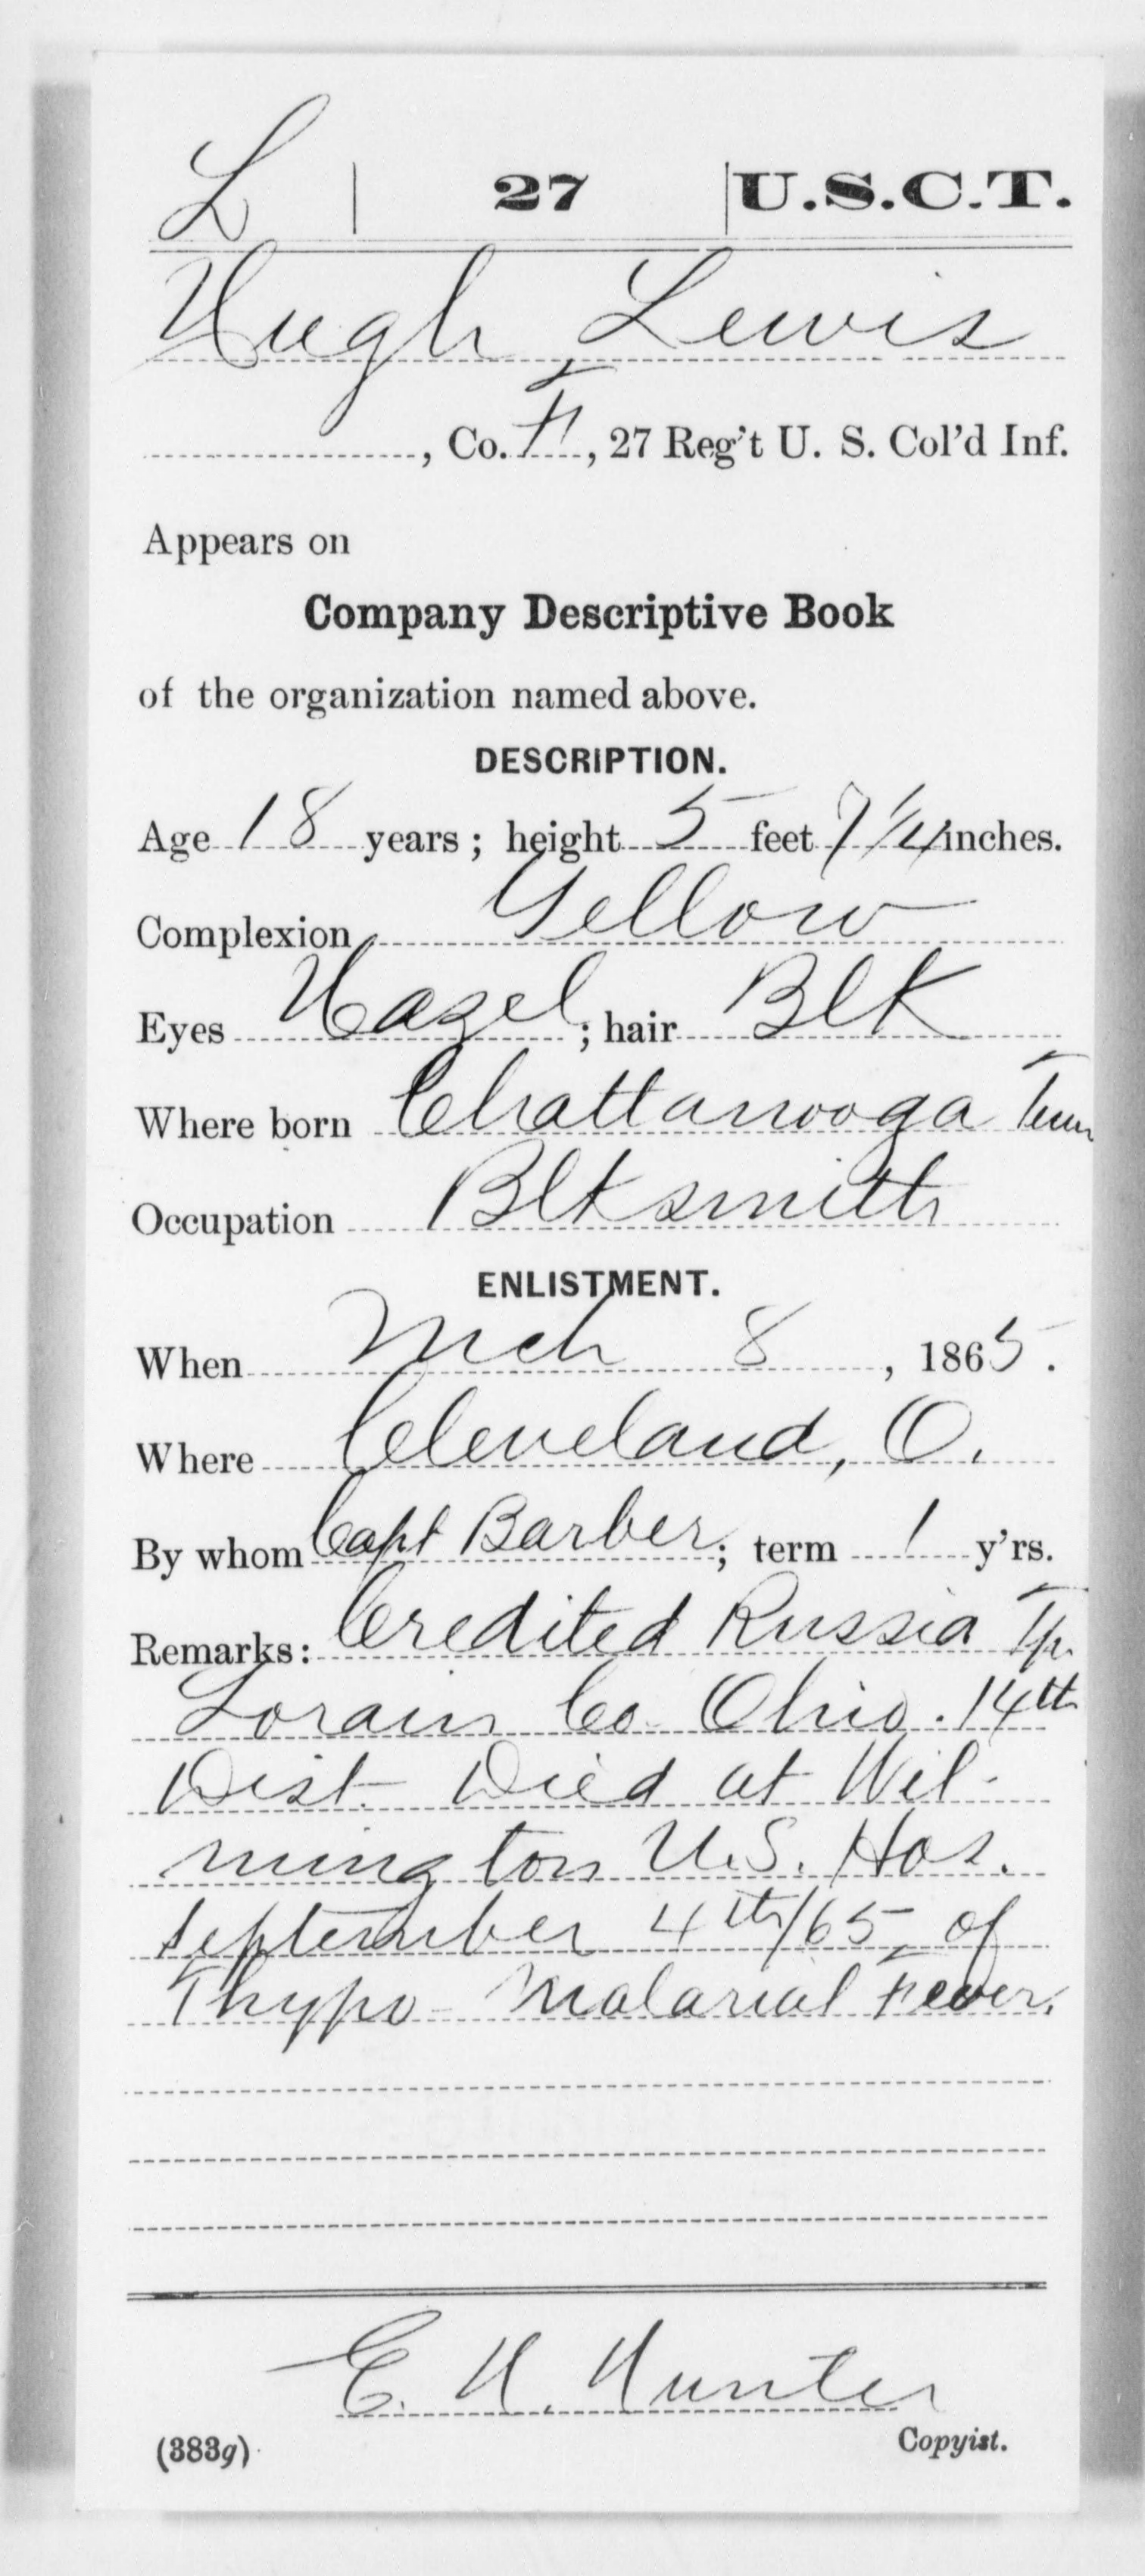 L | 27 | U.S.C.T.
Hugh Lewis
, Co. H, 27 Reg't U. S. Col'd Inf.
Appears on
Company Descriptive Book
of the organization named above.
DESCRIPTION.
Age 18 years; height 5 feet 7 1/4 inches.
Complexion Yellow
Eyes Hazel; hair Blk
Where born Chattanooga Tenn
Occupation Blksmith
ENLISTMENT.
When Mch 8, 1865.
Where Cleveland, O.
By whom Capt Barber; term 1 y'rs.
Remarks: Credited Russia Tp.
Lorain Co Ohio. 14th
Dist. Died at Wil-
mington U.S. Hos.
September 4th/65, of
Thypo-Malarial Fever.
E. H. Hunter
Copyist.
(383g)